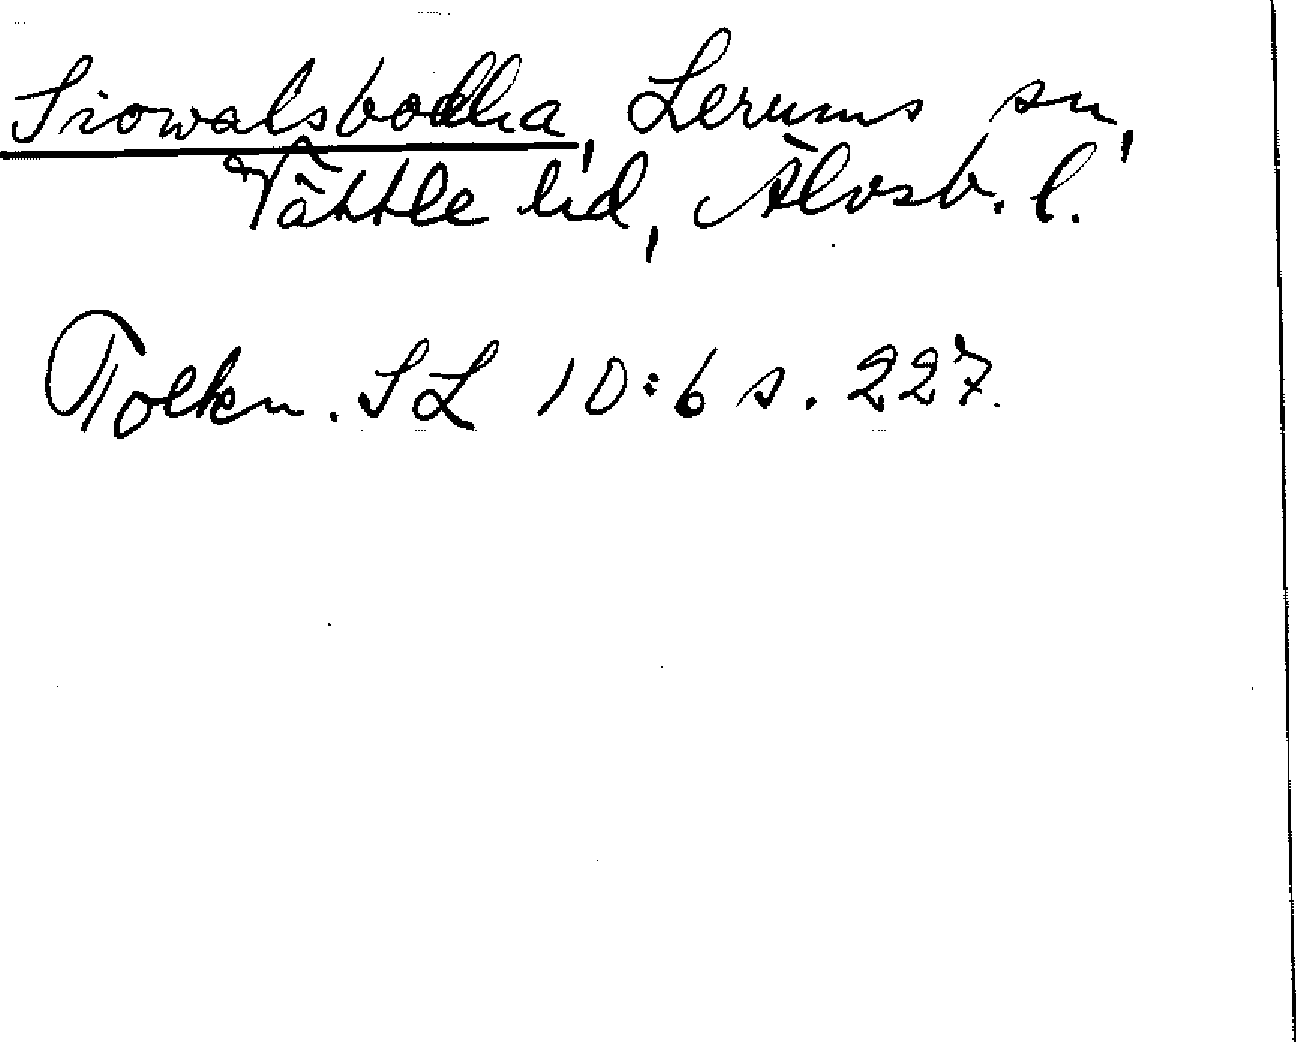 Siowalsbodha, Lerums sn,
Vättle hd, Älvsb. l.
Tolkn. SL 10:6 s. 227.